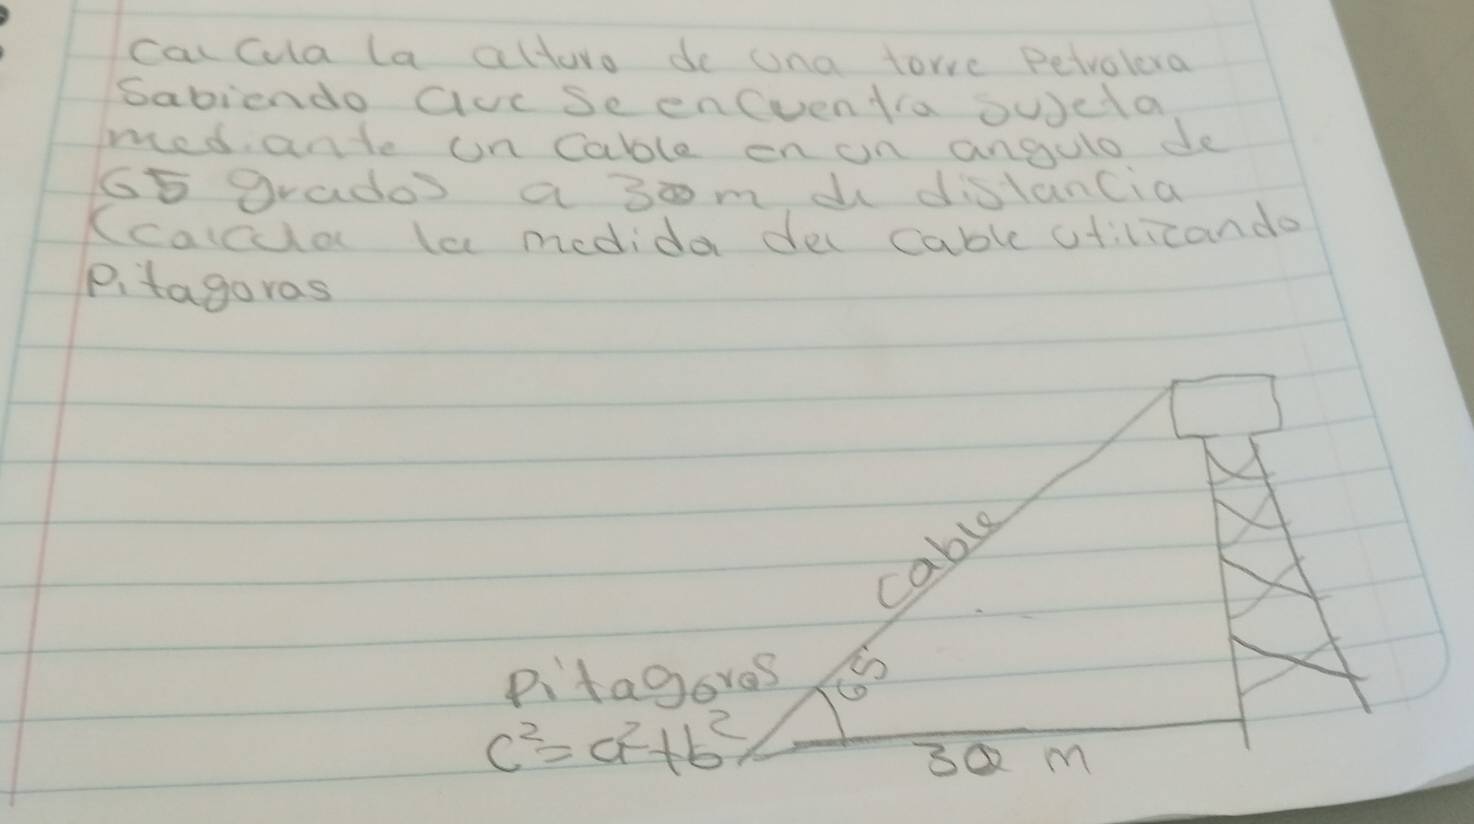 calcula la altura de una torre Petrolera
Sabiendo que Se encuentra sujeta
mediante un cable en un angulo de
65 grados a 30 m de distancia
(calcula la medida del cable utilizando
Pitagoras
cable
65
Pitagoras
c²=a²+b²
30 m